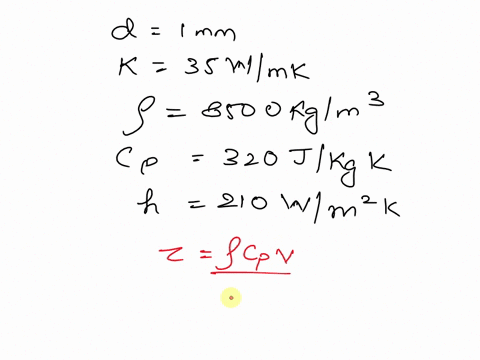 d = 1 mm
K = 35 W/mK
ρ = 8500 Kg/m³
Cp = 320 J/Kg K
h = 210 W/m²K
τ = ρCpV